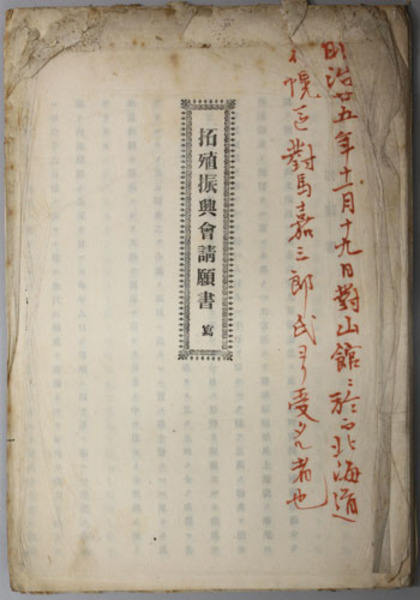 明治廿五年十一月十九日對山館ニ於而北海道
札幌區對馬嘉三郎氏ヨリ受タル者也
拓殖振興會請願書 寫